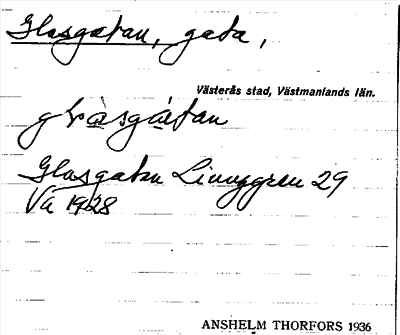 Glasgatan, gata,
Västerås stad, Västmanlands län.
glàsgàtan
Glasgatan Linnggren 29
Vä 1928
ANSHELM THORFORS 1936